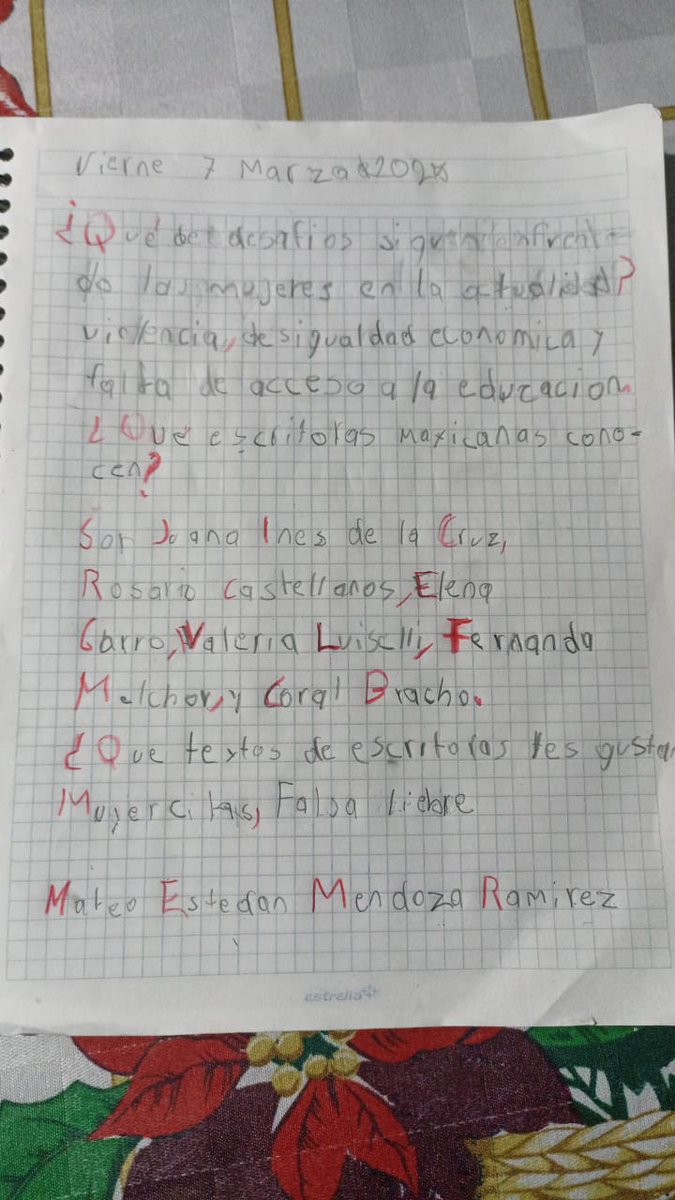 Vierne 7 Marzo
¿Qué desafios siguen enfrent
do las mujeres en la actualidad?
violencia, desigualdad economica y
falta de acceso a la educacion.
¿Qué escritoras maxicanas cono-
cen?
Sor Joana Ines de la Cruz,
Rosario Castellanos, Elena
Garro, Valeria Luiselli, Fernanda
Melchor, y Coral Bracho.
¿Que textos de escritoras les gusta
Mujercitas, Falsa Liebre
Mateo Estedan Mendoza Ramirez
estrella